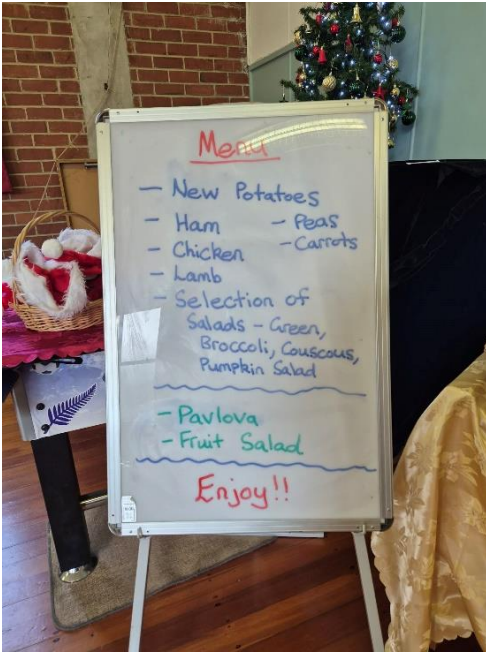 Menu
- New Potatoes
- Ham - Peas
- Chicken - Carrots
- Lamb
- Selection of
Salads - Green,
Broccoli, Couscous,
Pumpkin Salad
- Pavlova
- Fruit Salad
Enjoy!!